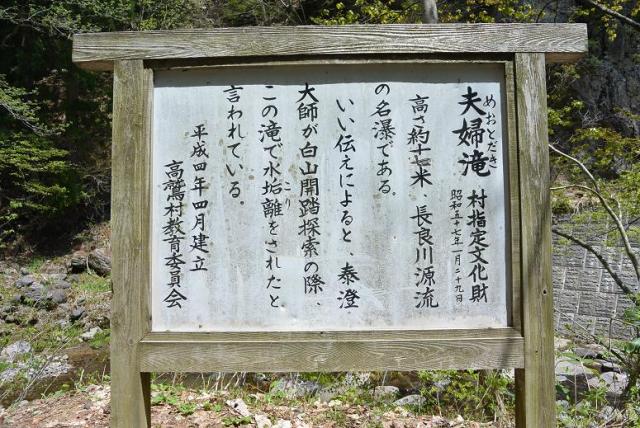 夫婦滝
めおとだき
村指定文化財
昭和五十七年一月二十九日
高さ約十七米 長良川源流
の名瀑である。
いい伝えによると、泰澄
大師が白山開踏探索の際、
この滝で水垢離をされたと
こり
言われている。
平成四年四月建立
高鷲村教育委員会